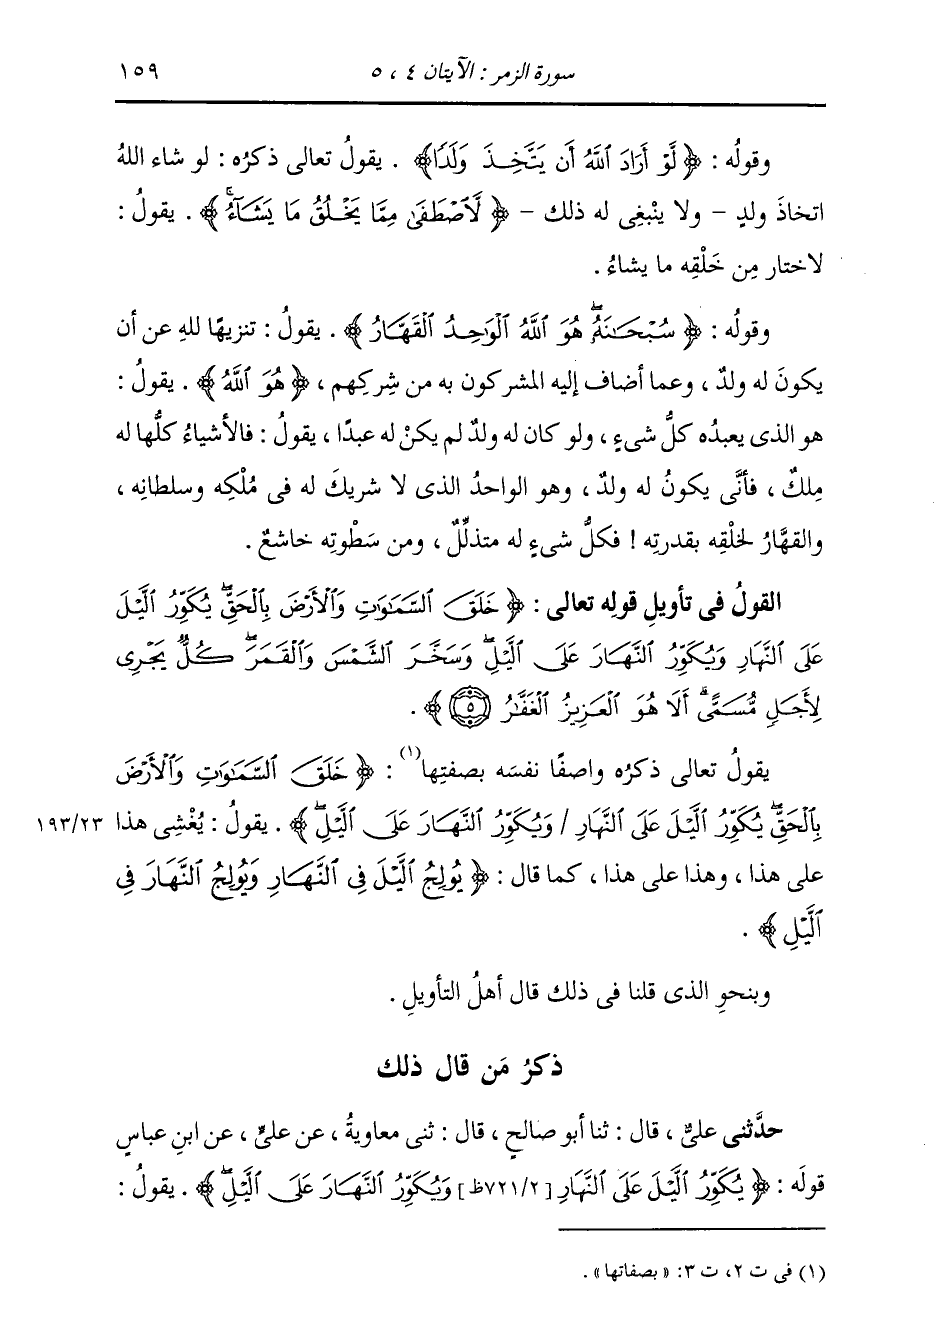 سورة الزمر : الآيتان ٤ ، ٥ ١٥٩
وقولُه : ﴿ لَّوْ أَرَادَ ٱللَّهُ أَن يَتَّخِذَ وَلَدًا﴾ . يقولُ تعالى ذكرُه : لو شاء اللهُ
اتخاذَ ولدٍ - ولا ينْبغِى له ذلك - ﴿ لَّٱصْطَفَىٰ مِمَّا يَخْلُقُ مَا يَشَآءُۚ﴾ . يقولُ :
لاختار مِن خَلْقِه ما يشاءُ .
وقولُه : ﴿ سُبْحَـٰنَهُۥۖ هُوَ ٱللَّهُ ٱلْوَٰحِدُ ٱلْقَهَّارُ ﴾ . يقولُ : تنزيهًا للهِ عن أن
يكونَ له ولدٌ ، وعما أضاف إليه المشركون به من شِركِهم ، ﴿ هُوَ ٱللَّهُ ﴾ . يقولُ :
هو الذى يعبدُه كلُّ شىءٍ ، ولو كان له ولدٌ لم يكنْ له عبدًا ، يقولُ : فالأشياءُ كلُّها له
مِلكٌ ، فأنَّى يكونُ له ولدٌ ، وهو الواحدُ الذى لا شريكَ له فى مُلْكِه وسلطانِه ،
والقهَّارُ لخلْقِه بقدرتِه ! فكلُّ شىءٍ له متذلِّلٌ ، ومن سَطْوتِه خاشعٌ .
القولُ فى تأويلِ قولِه تعالى : ﴿ خَلَقَ ٱلسَّمَـٰوَٰتِ وَٱلْأَرْضَ بِٱلْحَقِّۖ يُكَوِّرُ ٱلَّيْلَ
عَلَى ٱلنَّهَارِ وَيُكَوِّرُ ٱلنَّهَارَ عَلَى ٱلَّيْلِۖ وَسَخَّرَ ٱلشَّمْسَ وَٱلْقَمَرَۖ كُلٌّ يَجْرِى
لِأَجَلٍ مُّسَمًّىۗ أَلَا هُوَ ٱلْعَزِيزُ ٱلْغَفَّـٰرُ ۝٥ ﴾ .
يقولُ تعالى ذكرُه واصفًا نفسَه بصفتِها(١) : ﴿ خَلَقَ ٱلسَّمَـٰوَٰتِ وَٱلْأَرْضَ
بِٱلْحَقِّۖ يُكَوِّرُ ٱلَّيْلَ عَلَى ٱلنَّهَارِ / وَيُكَوِّرُ ٱلنَّهَارَ عَلَى ٱلَّيْلِۖ ﴾ . يقولُ : يُغْشِى هذا ١٩٣/٢٣
على هذا ، وهذا على هذا ، كما قال : ﴿ يُولِجُ ٱلَّيْلَ فِى ٱلنَّهَارِ وَيُولِجُ ٱلنَّهَارَ فِى
ٱلَّيْلِ ﴾ .
وبنحوِ الذى قلنا فى ذلك قال أهلُ التأويلِ .
ذكرُ مَن قال ذلك
حدَّثنى علىٌّ ، قال : ثنا أبو صالحٍ ، قال : ثنى معاويةُ ، عن علىٍّ ، عن ابنِ عباسٍ
قولَه : ﴿ يُكَوِّرُ ٱلَّيْلَ عَلَى ٱلنَّهَارِ [٧٢١/٢ظ] وَيُكَوِّرُ ٱلنَّهَارَ عَلَى ٱلَّيْلِۖ ﴾ . يقولُ :
(١) فى ت ٢، ت ٣: « بصفاتها » .